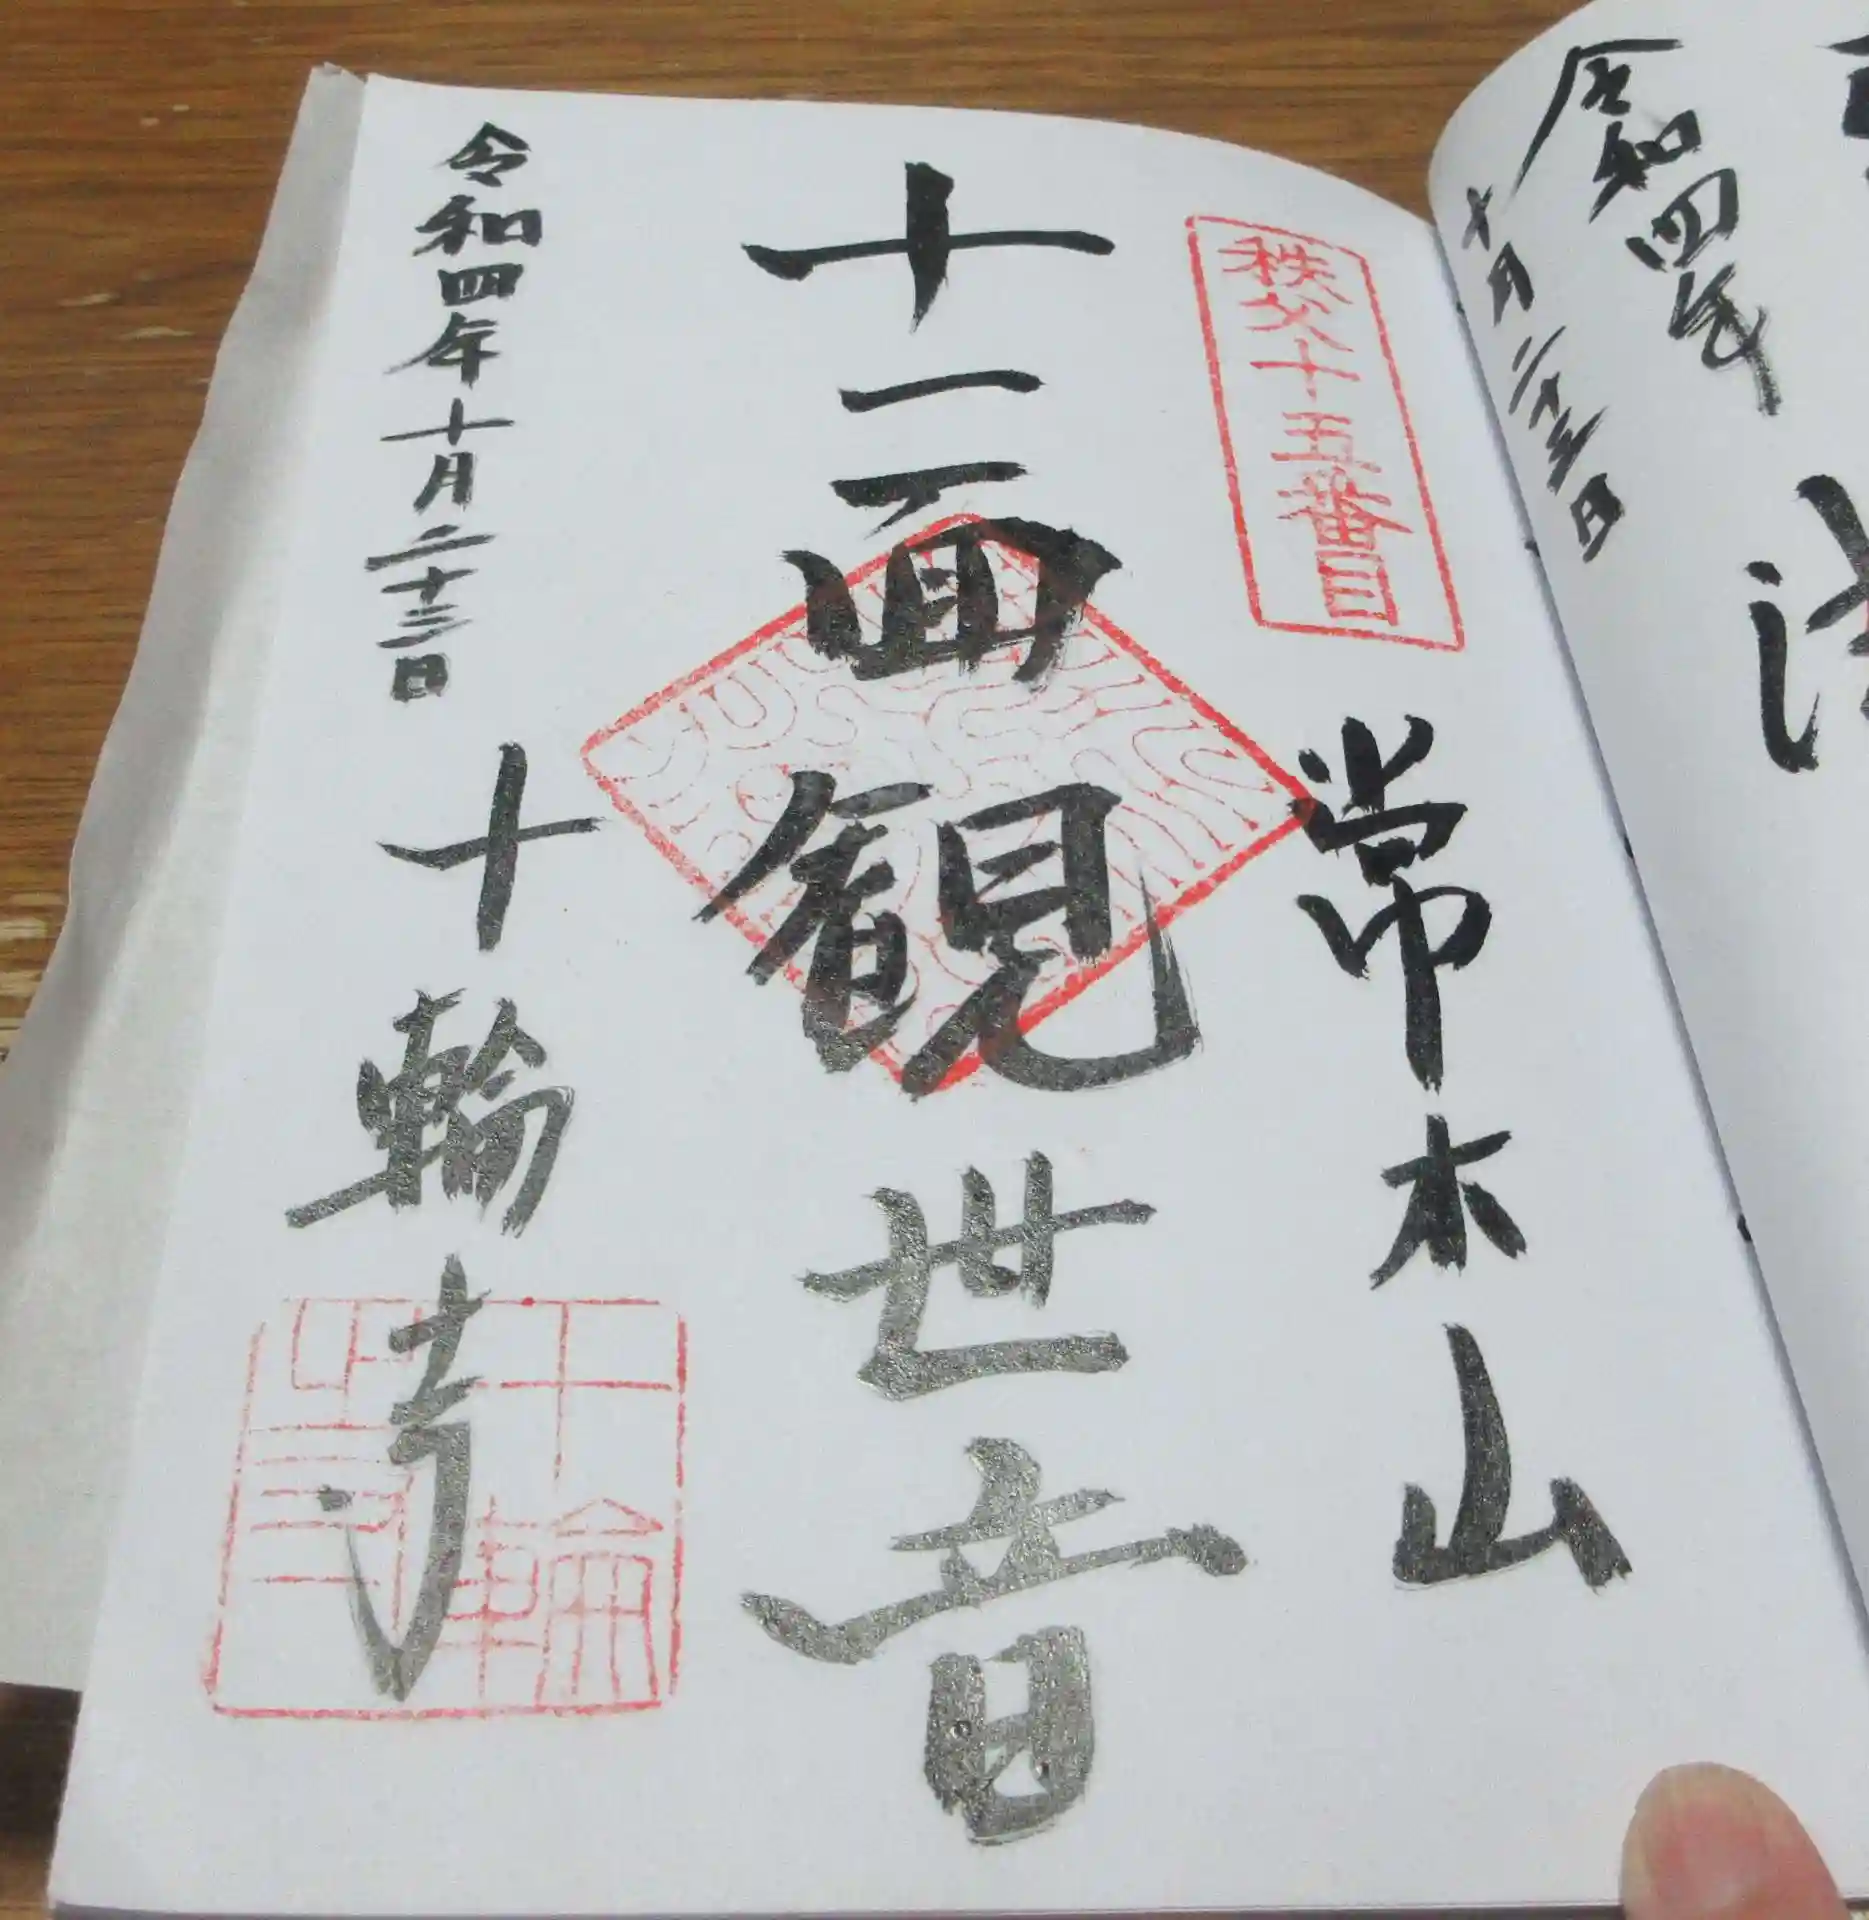 令和四年
十月二十三日
秩父十五番目
常木山
十一面観世音
令和四年十月二十三日
十輪寺
十輪
寺印